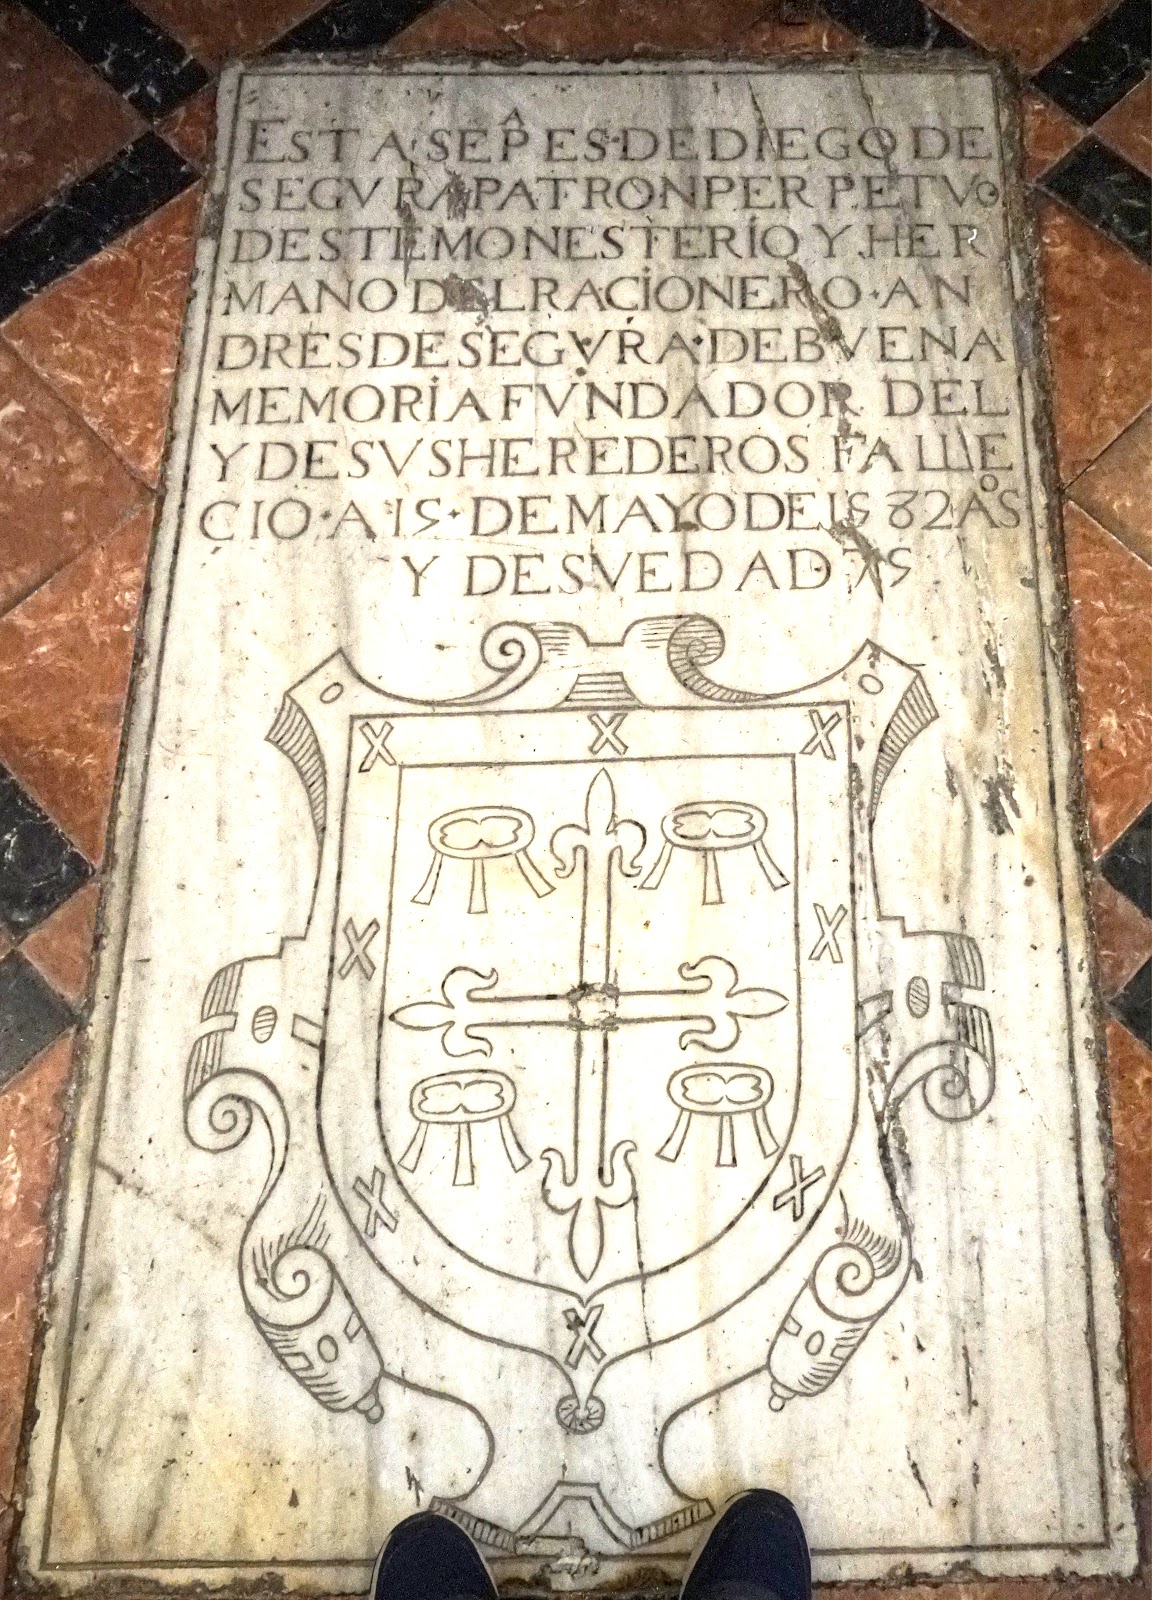 ESTA SEPᴬ ES·DE DIEGO DE
SEGVRA PATRON PERPETVO
DESTE MONESTERIO Y HER
MANO DEL RACIONERO·AN
DRES DE SEGVRA·DE BVENA
MEMORIA FVNDADOR DEL
Y DE SVS HEREDEROS FALLE
CIO·A·15·DE MAYO DE 1582 AºS
Y DE SV EDAD 75